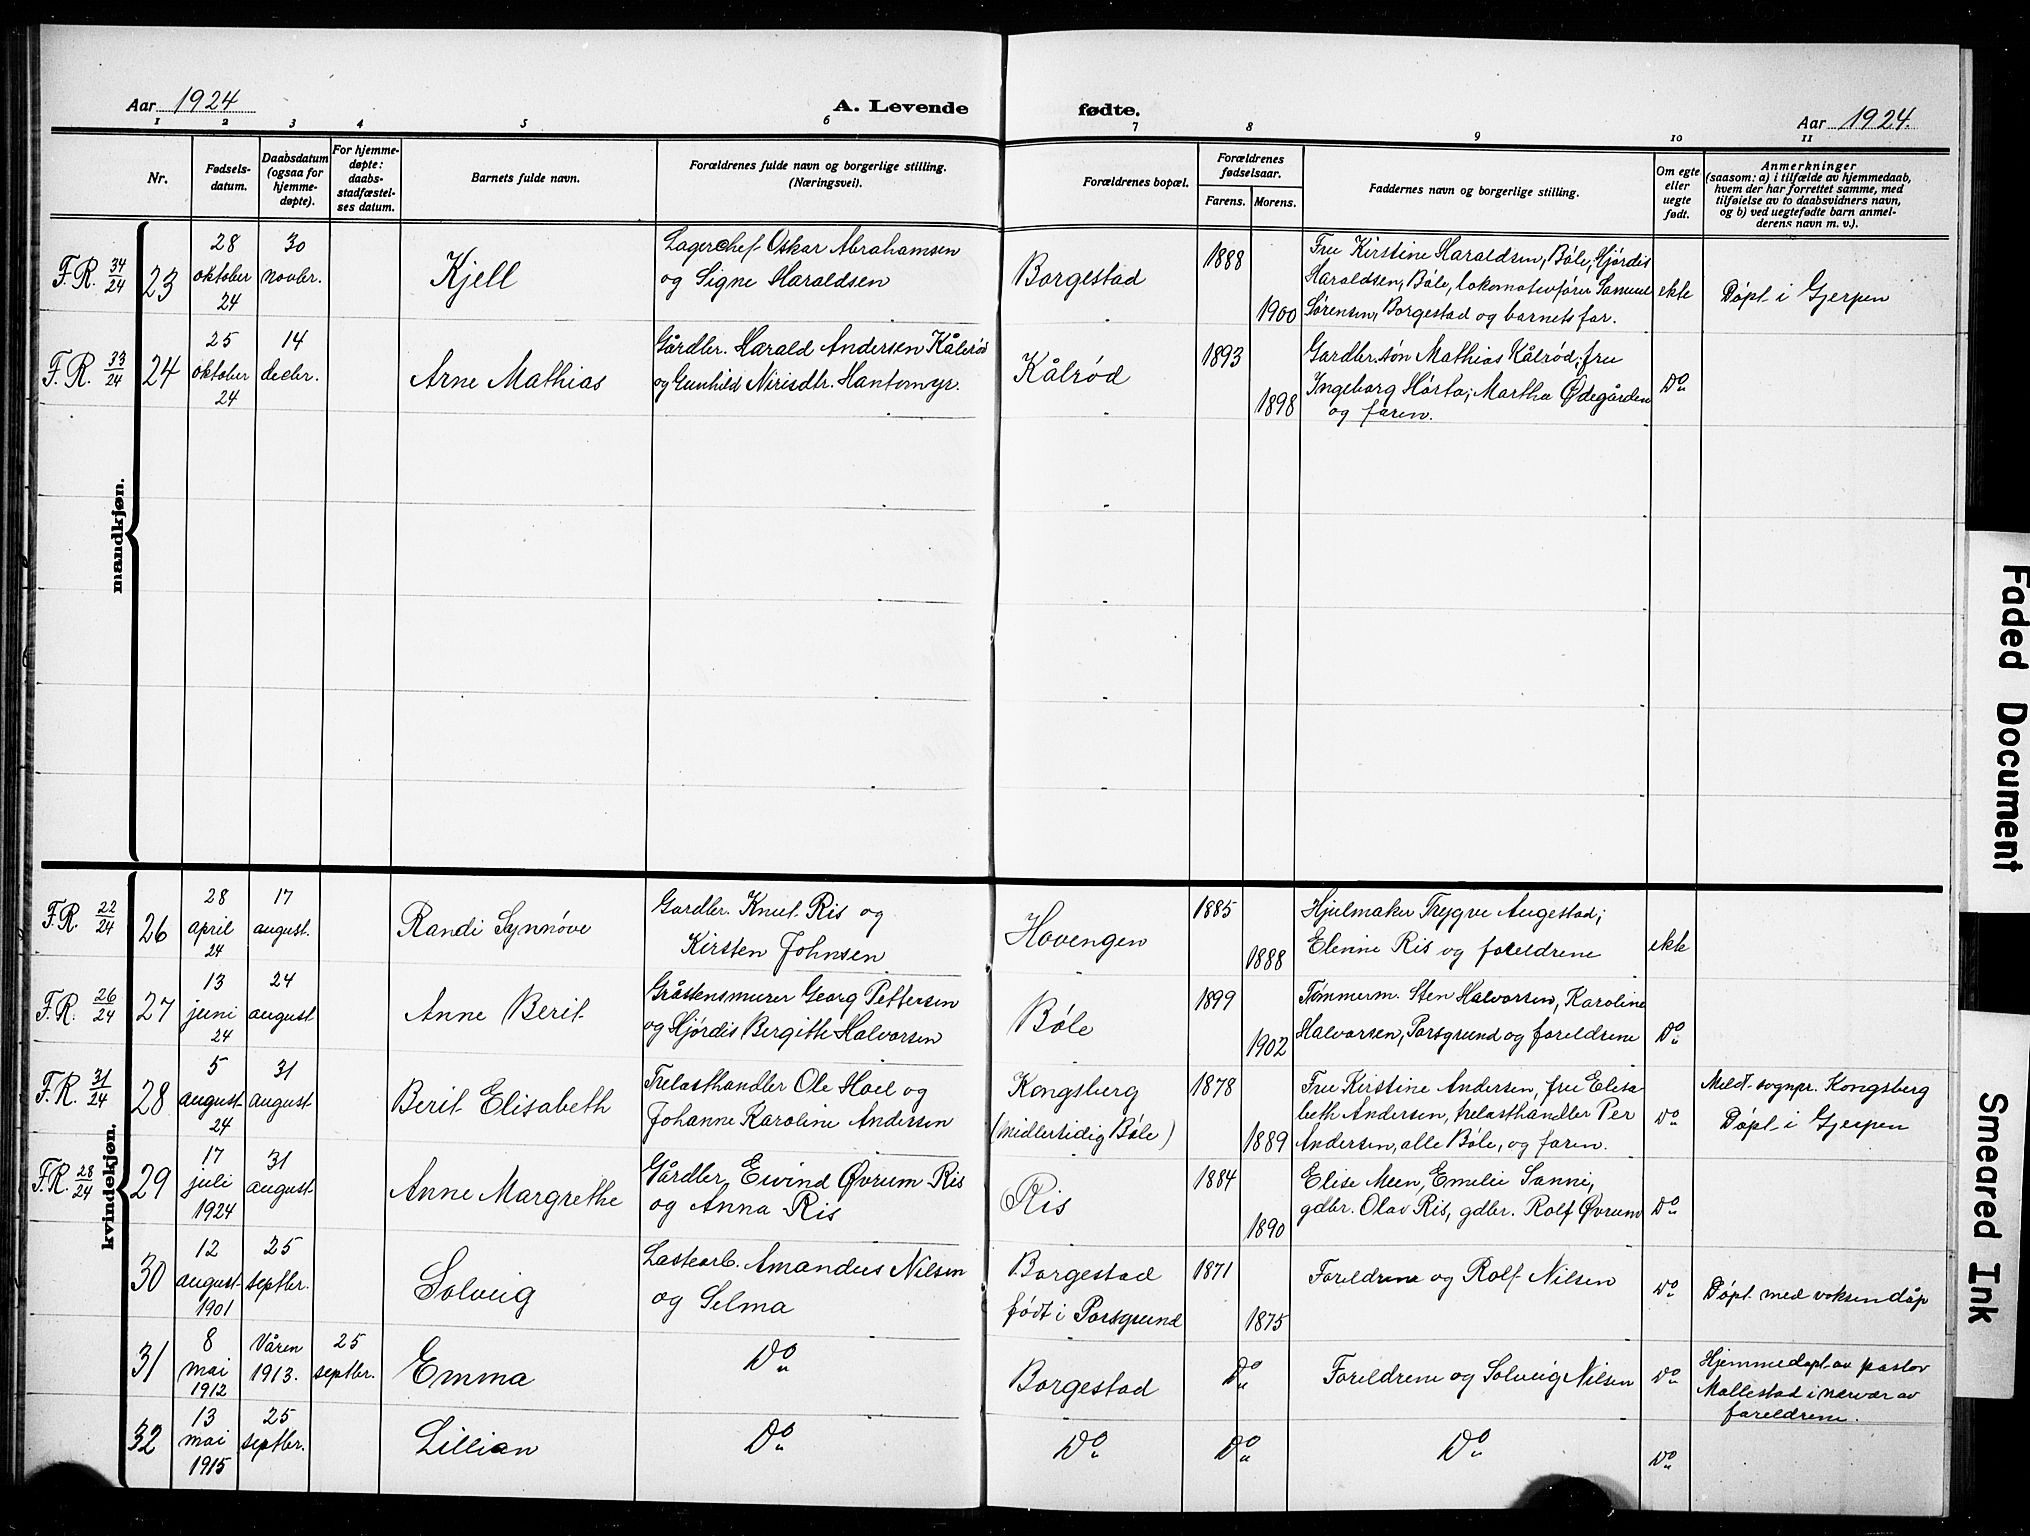 Aar 1924
A. Levende fødte.
Aar 1924.
1 2 3 4 5 6 7 8 9 10 11
Nr.
Fødsels-
datum.
Daabsdatum
(ogsaa for
hjemme-
døpte).
For hjemme-
døpte:
daabs-
stadfæstel-
ses datum.
Barnets fulde navn.
Forældrenes fulde navn og borgerlige stilling.
(Næringsvei).
Forældrenes bopæl.
Forældrenes
fødselsaar.
Farens. Morens.
Faddernes navn og borgerlige stilling.
Om egte
eller
uegte
født.
Anmerkninger
(saasom: a) i tilfælde av hjemmedaab,
hvem der har forrettet samme, med
tilføielse av to daabsvidners navn,
og b) ved uegtefødte barn anmel-
derens navn m. v.).
mandkjøn.
F.R. 34/24
23
28
oktober
24
30
novbr.
Kjell
Lagerchef Oskar Abrahamsen
og Signe Haraldsen
Borgestad
1888
1900
Fru Kirstine Haraldsen, Bøle; Hjørdis
Haraldsen, Bøle, lokomotivfører Samuel
Sørensen, Borgestad og barnets far.
ekte
Døpt i Gjerpen
F.R. 33/24
24
25
oktober
24
14
decbr.
Arne Mathias
Gårdbr. Harald Andersen Kålrød
og Gunhild Nirisdtr. Hantomyr.
Kålrød
1893
1898
Gardbr. søn Mathias Kålrød; fru
Ingeborg Hørta; Martha Ødegården
og faren.
Do
kvindekjøn.
F.R. 22/24
26
28
april
24
17
august.
Randi Synnøve
Gardbr. Knut Ris og
Kirsten Johnsen
Hovengen
1885
1888
Hjulmaker Trygve Augestad;
Elenine Ris og foreldrene
ekte
F.R. 26/24
27
13
juni
24
24
august
Anne Berit
Gråstensmurer Georg Pettersen
og Hjørdis Bergitte Halvorsen
Bøle
1899
1902
Tømmerm. Sten Halvorsen, Karoline
Halvorsen, Porsgrund og foreldrene
Do
F.R. 31/24
28
5
august
24
31
august
Berit Elisabeth
Trelasthandler Ole Hoel og
Johanne Karoline Andersen
Kongsberg
(midlertidig Bøle)
1878
1889
Fru Kirstine Andersen, fru Elisa
beth Andersen, trelasthandler Per
Andersen, alle Bøle, og faren.
Do
Meldt sognpr. Kongsberg
Døpt i Gjerpen
F.R. 28/24
29
17
juli
1924
31
august
Anne Margrethe
Gårdbr. Eivind Øvrum Ris
og Anna Ris
Ris
1884
1890
Elise Meen, Emilie Sanni,
gdbr. Olav Ris, gdbr. Rolf Øvrum
Do
30
12
august
1901
25
septbr.
Solveig
Lastearb. Amandus Nilsen
og Selma
Borgestad
født i Porsgrund
1871
1875
Foreldrene og Rolf Nilsen
Do
Døpt med voksendåp
31
8
mai
1912
Våren
1913.
25
septbr.
Emma
Do
Borgestad
Do
Foreldrene og Solveig Nilsen
Do
Hjemmedøpt av pastor
Mallestad i nærvær av
foreldrene.
32
13
mai
1915
25
septbr.
Lillian
Do
Do
Do
Do
Do
Faded Document
Smeared Ink